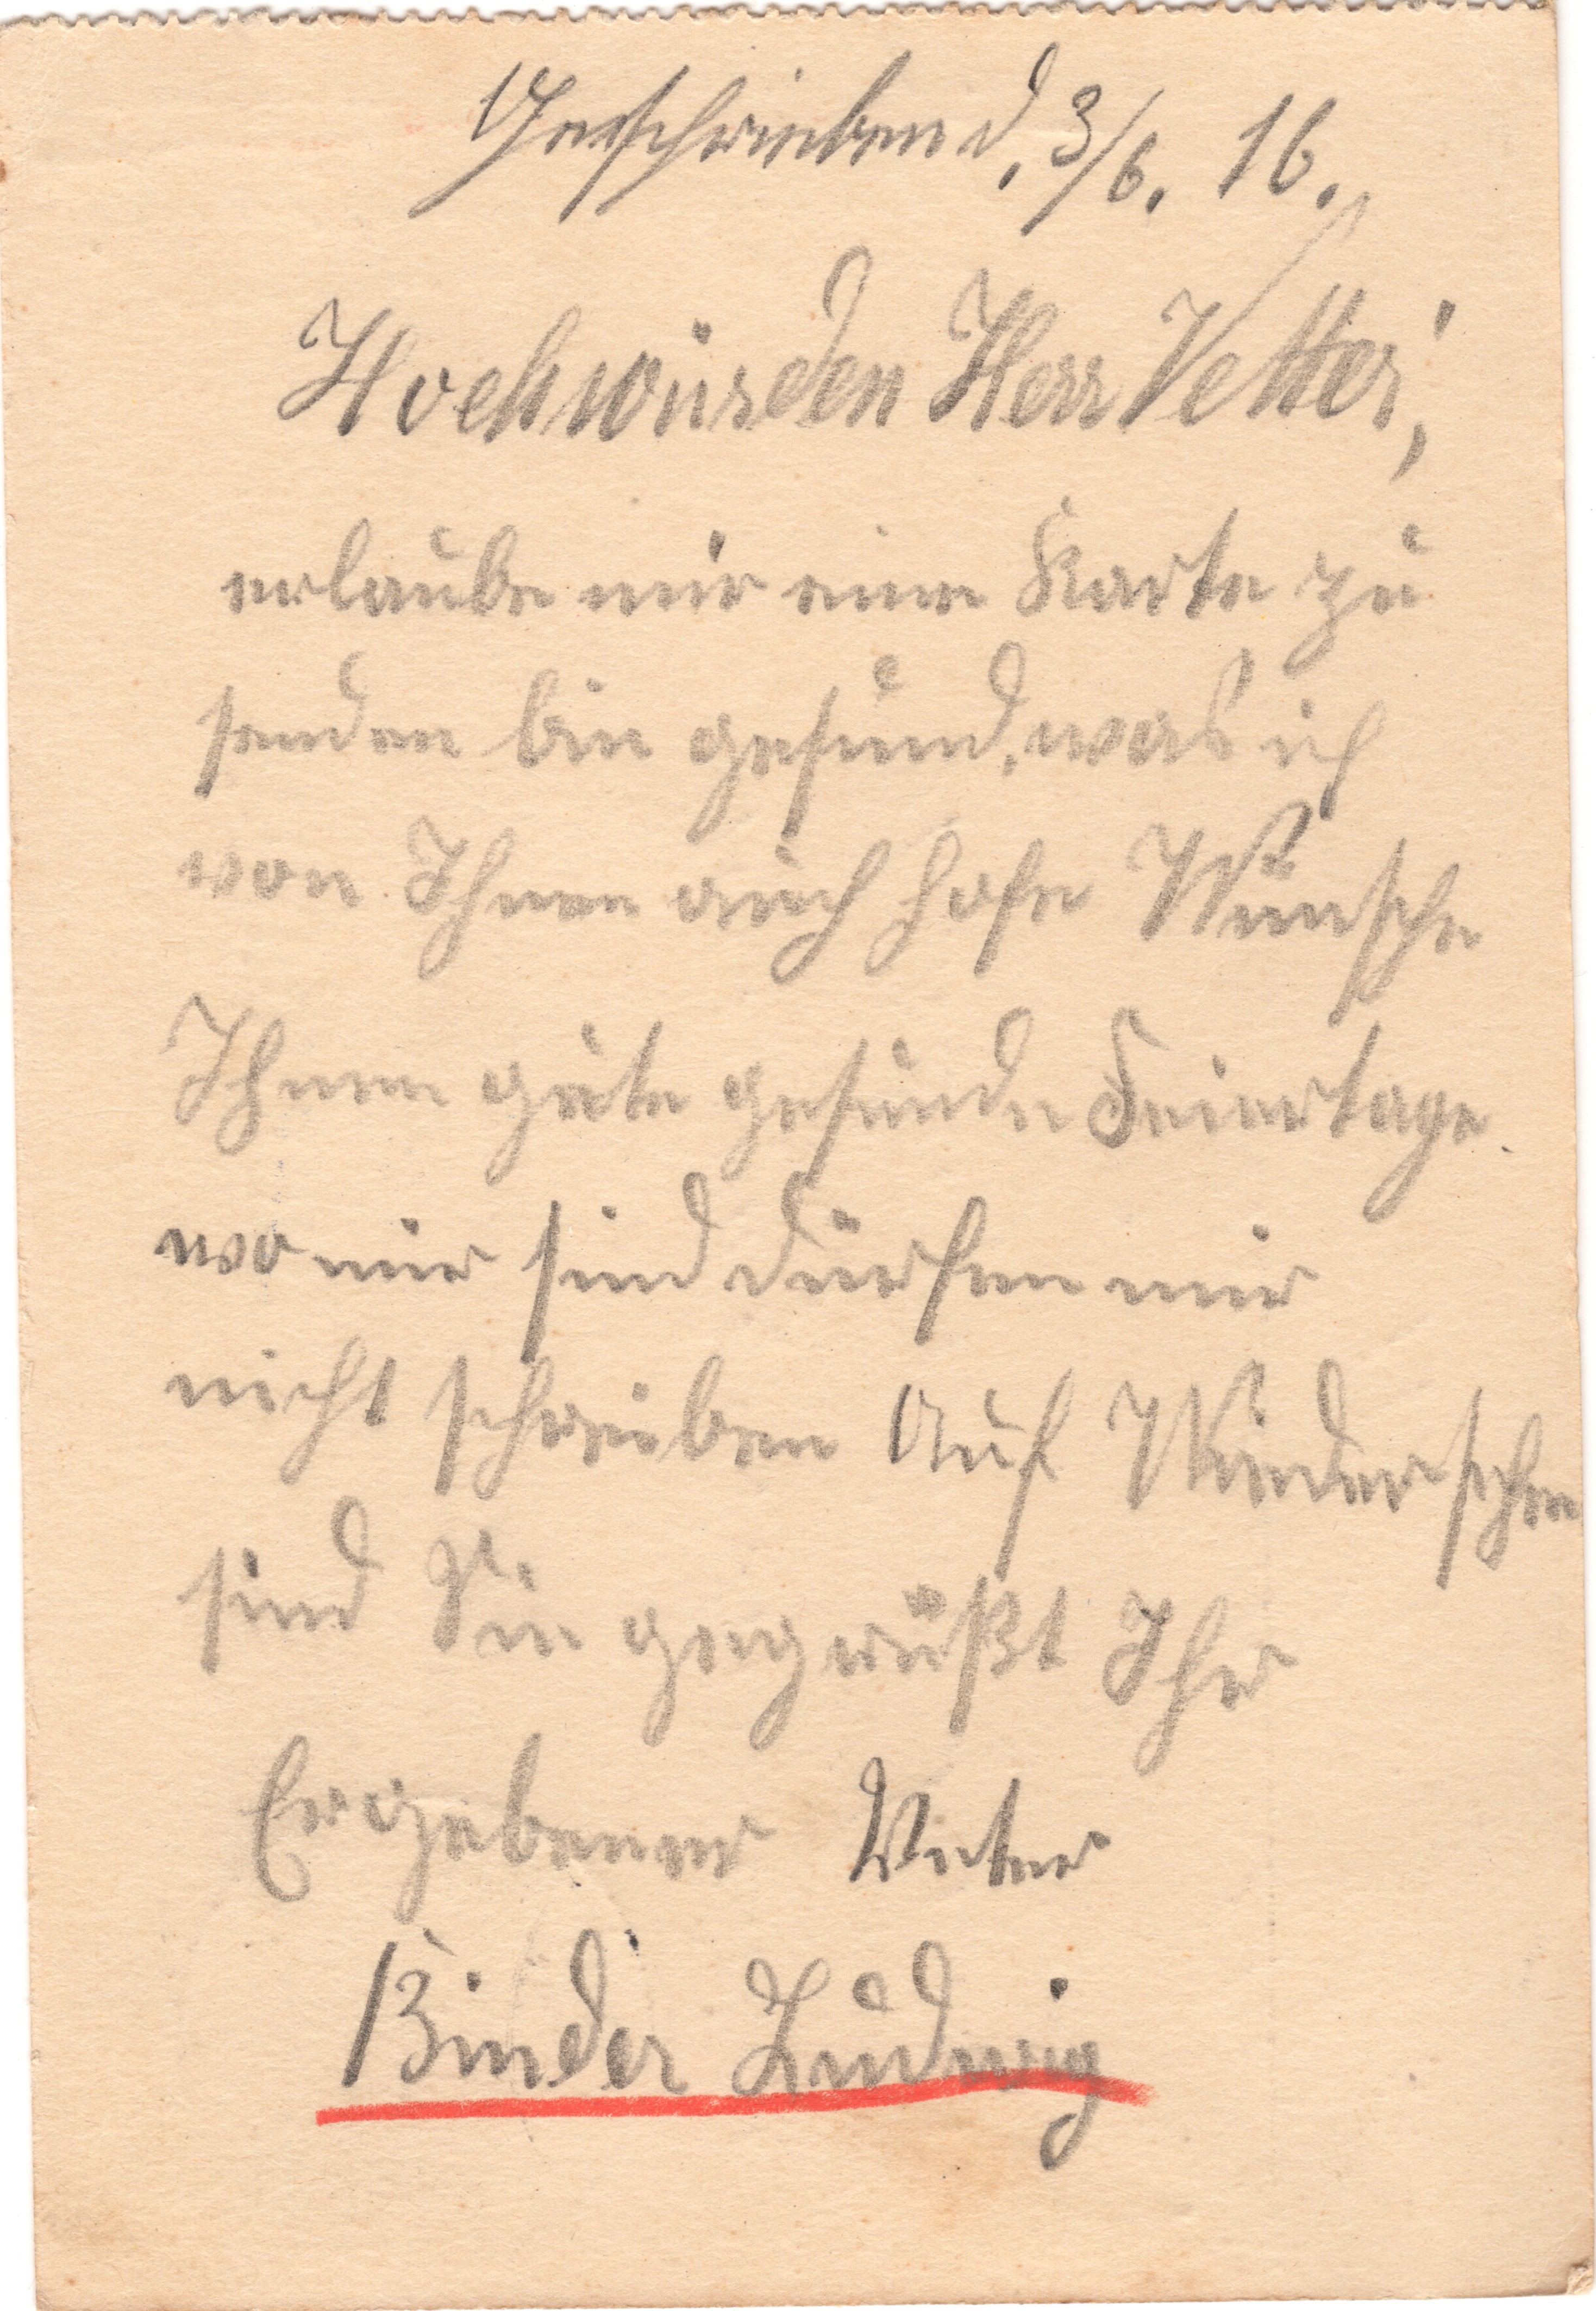 Geschrieben d. 3/6. 16.
Hochwürden Herr Vetter,
erlaube mir eine Karte zu
senden bin gesund, was ich
von Ihnen auch hofe Wünsche
Ihnen gute gesunde Feiertage
wo mir sind dürfen mir
nicht schreiben Auf Wiedersehen
sind Sie gegrüßt Ihr
Ergebener Veter
Binder Ludwig